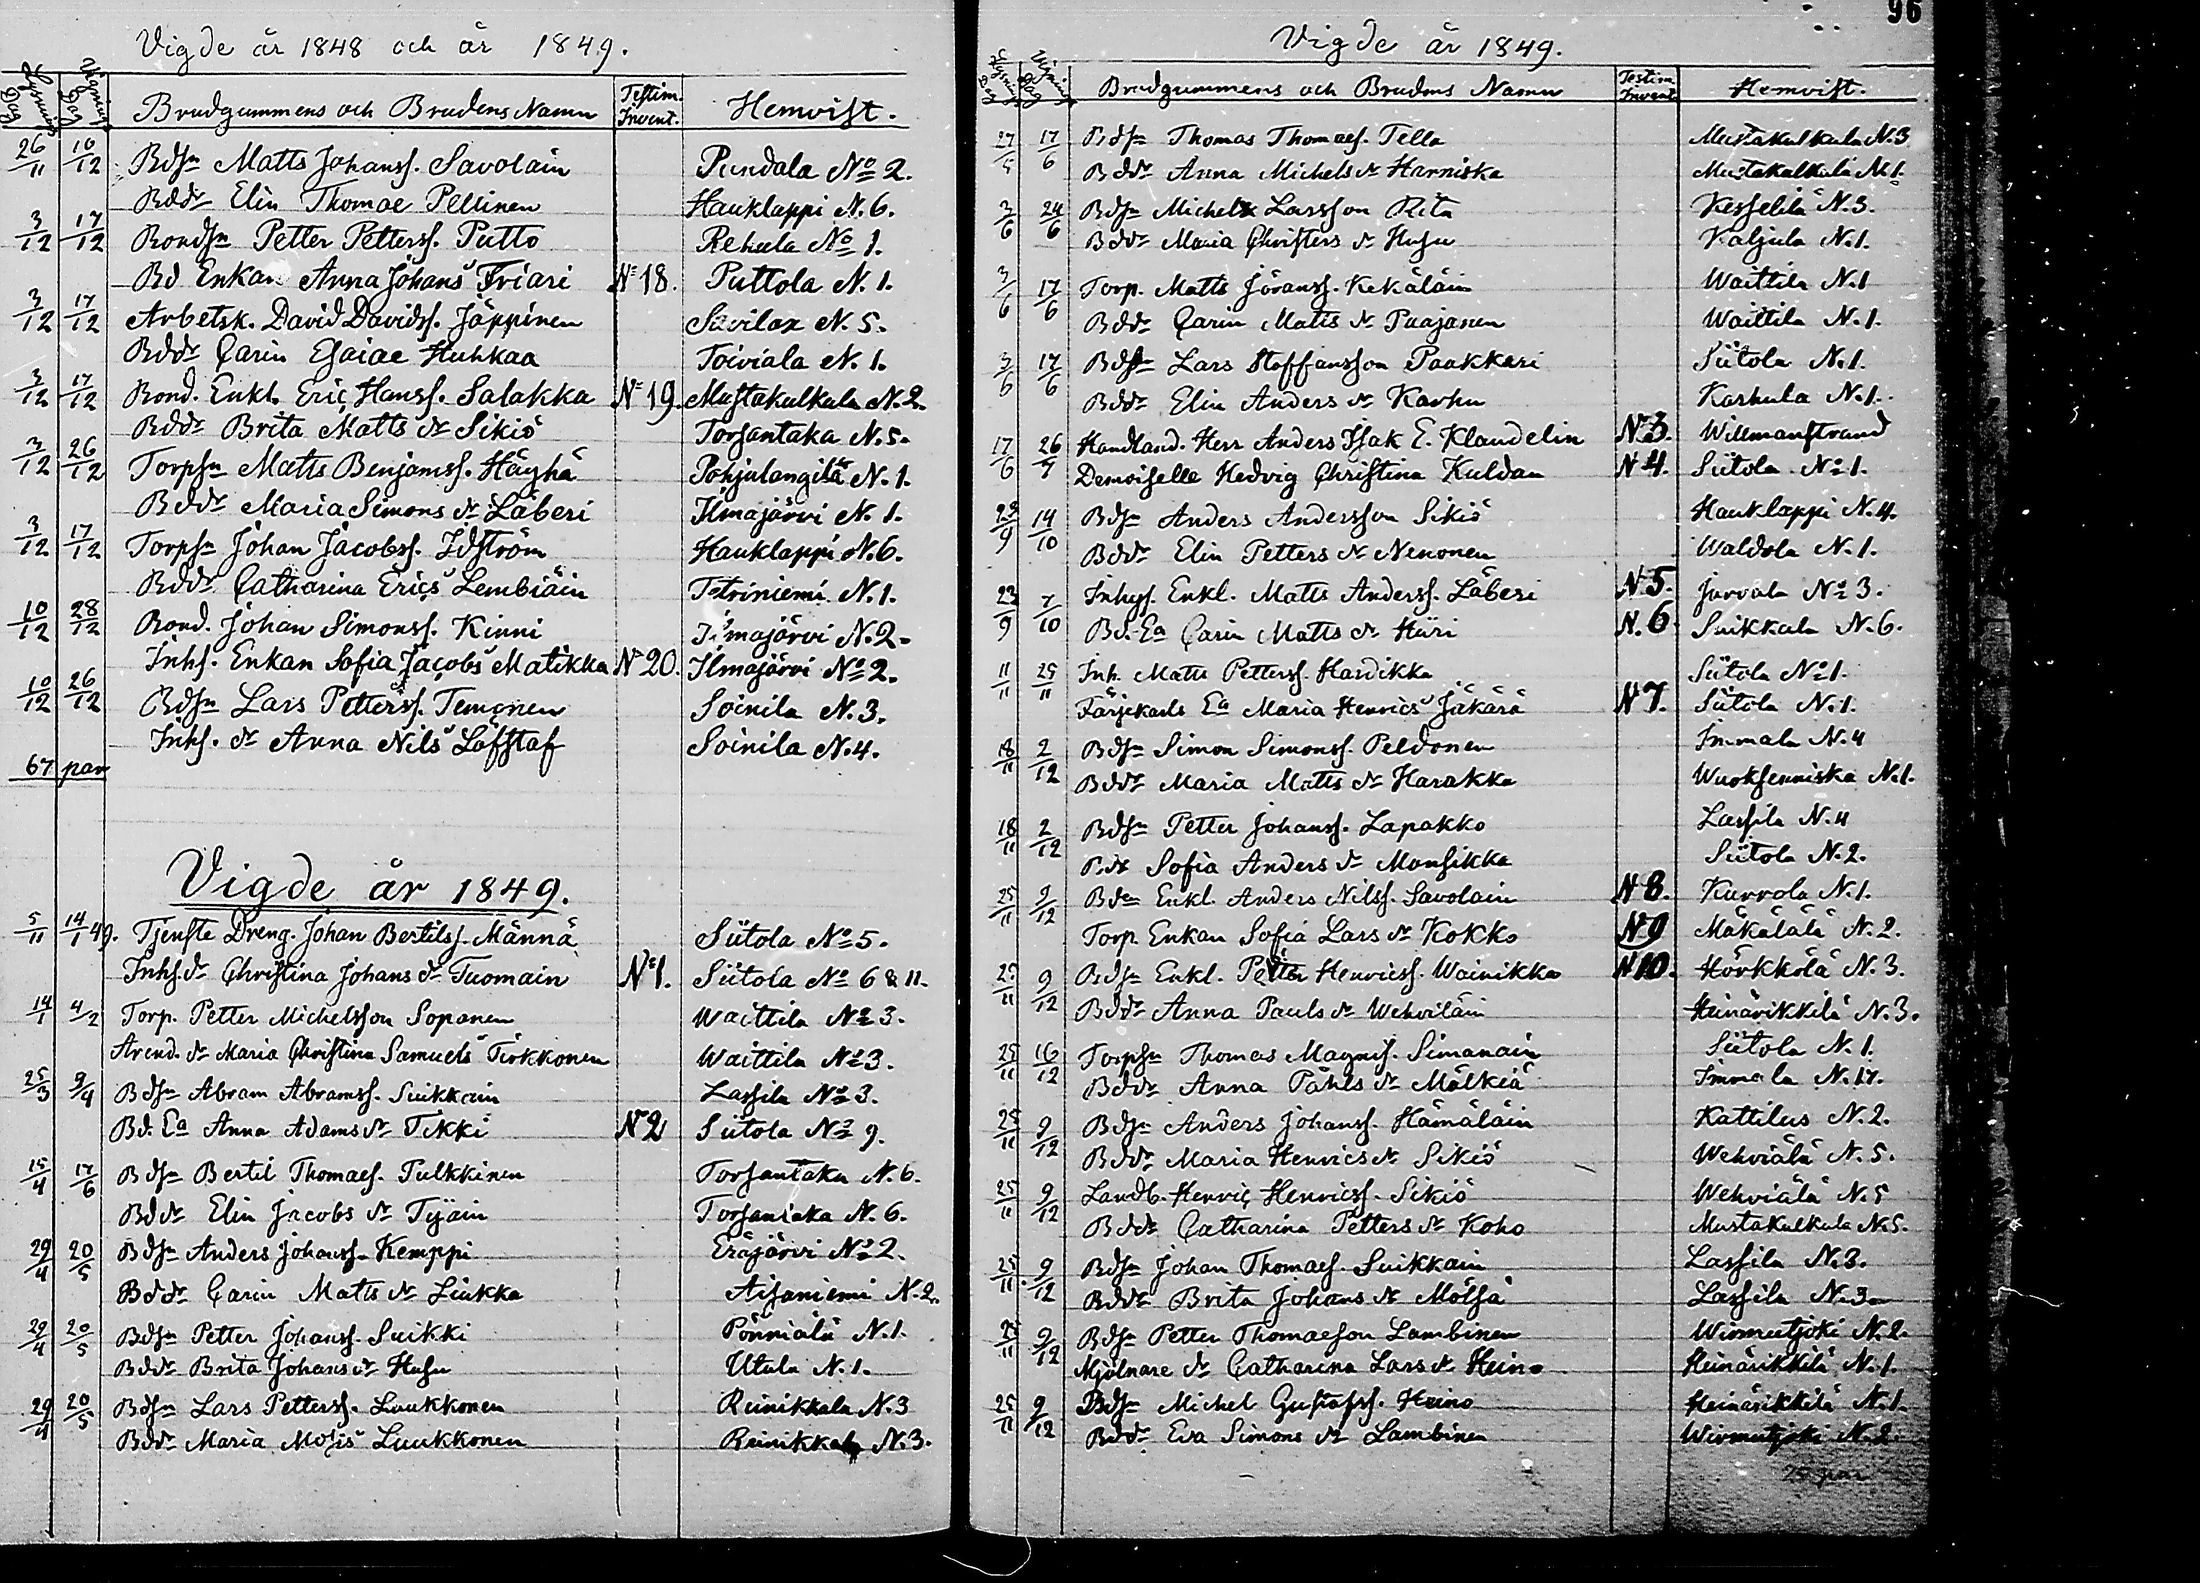 Vigde år 1848 och år 1849.
Lysnings Dag Vignings Dag Brudgummens och Brudens Namn Testim. Invent. Hemvist.
26/11 10/12 Bdsn Matts Johanss. Savolain Pundala No 2.
Bddr Elin Thomae Pellinen Hauklappi N. 6.
3/12 17/12 Bondsn Petter Petterss. Putto Rehula No 1.
Bd Enkan Anna Johans Friari No 18. Puttola N. 1.
3/12 17/12 Arbetsk. David Davidss. Jäppinen Savilax N. 5.
Bddr Carin Esaiae Huhkaa Toiviala N. 1.
3/12 17/12 Bond. Enkl. Eric Hanss. Salakka No 19. Mustakulkula N. 2.
Bddr Brita Matts dr Sikiö Torsantaka N. 5.
3/12 26/12 Torpsn Matts Benjamss. Häyhä Pohjalangila N. 1.
Bddr Maria Simons dr Läberi Ilmajärvi N. 1.
3/12 17/12 Torpsn Johan Jacobss. Idström Hauklappi N. 6.
Bddr Catharina Erics Lembiäin Tetriniemi N. 1.
10/12 28/12 Bond. Johan Simonss. Kinni Ilmajärvi N. 2.
Inhs. Enkan Sofia Jacobs Matikka No 20. Ilmajärvi No 2.
10/12 26/12 Bdsn Lars Petterss. Temonen Soinila N. 3.
Inhs. dr Anna Nils Löfstaf Soinila N. 4.
67 par
Vigde år 1849.
5/11 14/1 49. Tjenste Dreng. Johan Bertilss. Männä Siitola No 5.
Inhs. dr Christina Johans dr Tuomain No 1. Siitola No 6 & 11.
14/1 4/2 Torp. Petter Michelsson Soponen Waittila No 3.
Arend. dr Maria Christina Samuels Tirkkonen Waittila No 3.
25/3 9/4 Bdsn Abram Abramss. Suikkain Lassila No 3.
Bd. Ea Anna Adams dr Tikki No 2 Siitola No 9.
15/4 17/6 Bdsn Bertil Thomaes. Pulkkinen Torsantaka N. 6.
Bddr Elin Jacobs dr Tijäin Torsantaka N. 6.
29/4 20/5 Bdsn Anders Johanss. Kemppi Eräjärvi No 2.
Bddr Carin Matts dr Liukka Aisaniemi N. 2.
29/4 20/5 Bdsn Petter Johanss. Suikki Pönniälä N. 1.
Bddr Brita Johans dr Husu Utula N. 1.
29/4 20/5 Bdsn Lars Petterss. Luukkonen Reinikkala N. 3
Bddr Maria Luukkonen Reinikkala N. 3.
96
Vigde år 1849.
Lysnings Dag Vignings Dag Brudgummens och Brudens Namn Testim. Invent. Hemvist.
27/5 17/6 Bdsn Thomas Thomaes. Tella Mustakulkula N. 3
Bddr Anna Michels dr Harniska Mustakulkula N. 1.
3/6 24/6 Bdsn Michel Larsson Rita Kesselilä N. 3.
Bddr Maria Christers dr Husu Kaljula N. 1.
3/6 17/6 Torp. Matts Göranss. Kekäläin Waittila N. 1
Bddr Carin Matts dr Paajanen Waittila N. 1.
3/6 17/6 Bdsn Lars Staffansson Paakkari Siitola N. 1.
Bddr Elin Anders dr Karhu Karhula N. 1.
17/6 26/7 Handland. Herr Anders Isak E. Klaudelin No 3. Willmanstrand
Demoiselle Hedvig Christina Kuldan N 4. Siitola No 1.
23/9 14/10 Bdsn Anders Andersson Sikiö Hauklappi N. 4.
Bddr Elin Petters dr Nenonen Waldola N. 1.
23/9 7/10 Inhys. Enkl. Matts Anderss. Läberi N. 5. Jarvala No 3.
Bd. Ea Carin Matts dr Hiiri N. 6. Suikkala N. 6.
11/11 25/11 Inh. Matts Petterss. Hardikka Siitola No 1.
Färjekarls Ea Maria Henrics Jäkärä No 7. Siitola N. 1.
18/11 2/12 Bdsn Simon Simonss. Peldonen Immala N. 4
Bddr Maria Matts dr Harakka Wuoksenniska N. 1.
18/11 2/12 Bdsn Petter Johanss. Lapakko Lassila N. 4
Sofia Anders dr Mansikka Siitola N. 2.
25/11 9/12 Enkl. Anders Nilss. Savolain No 8. Kurrola N. 1.
Torp. Enkan Sofia Lars dr Kokko No 9 Mäkälälä N. 2.
25/11 9/12 Bdsn Enkl. Petter Henricss. Wainikka No 10. Hörkkölä N. 3.
Bddr Anna Pauls dr Wehviläin Heinärikkilä N. 3.
25/11 16/12 Torpsn Thomas Magnis. Simanain Siitola N. 1.
Bddr Anna Påhls dr Mälkiä Immala N. 17.
25/11 9/12 Bdsn Anders Johanss. Hämäläin Kattilus N. 2.
Bddr Maria Henrics dr Sikiö Wehviälä N. 5.
25/11 9/12 Landb. Henric Henricss. Sikiö Wehviälä N. 5
Bddr Catharina Petters dr Koho Mustakulkula N. 5.
25/11 9/12 Bdsn Johan Thomaes. Suikkain Lassila N. 3.
Bddr Brita Johans dr Mölsä Lassila N. 3
25/11 9/12 Bdsn Petter Thomaeson Lambinen Wirmutjoki N. 2.
Mjölnare dr Catharina Lars dr Heino Heinärikkilä N. 1.
25/11 9/12 Bdsn Michel Gustafss. Heino Heinärikkilä N. 1.
Bddr Eva Simons dr Lambinen Wirmutjoki N. 2.
par